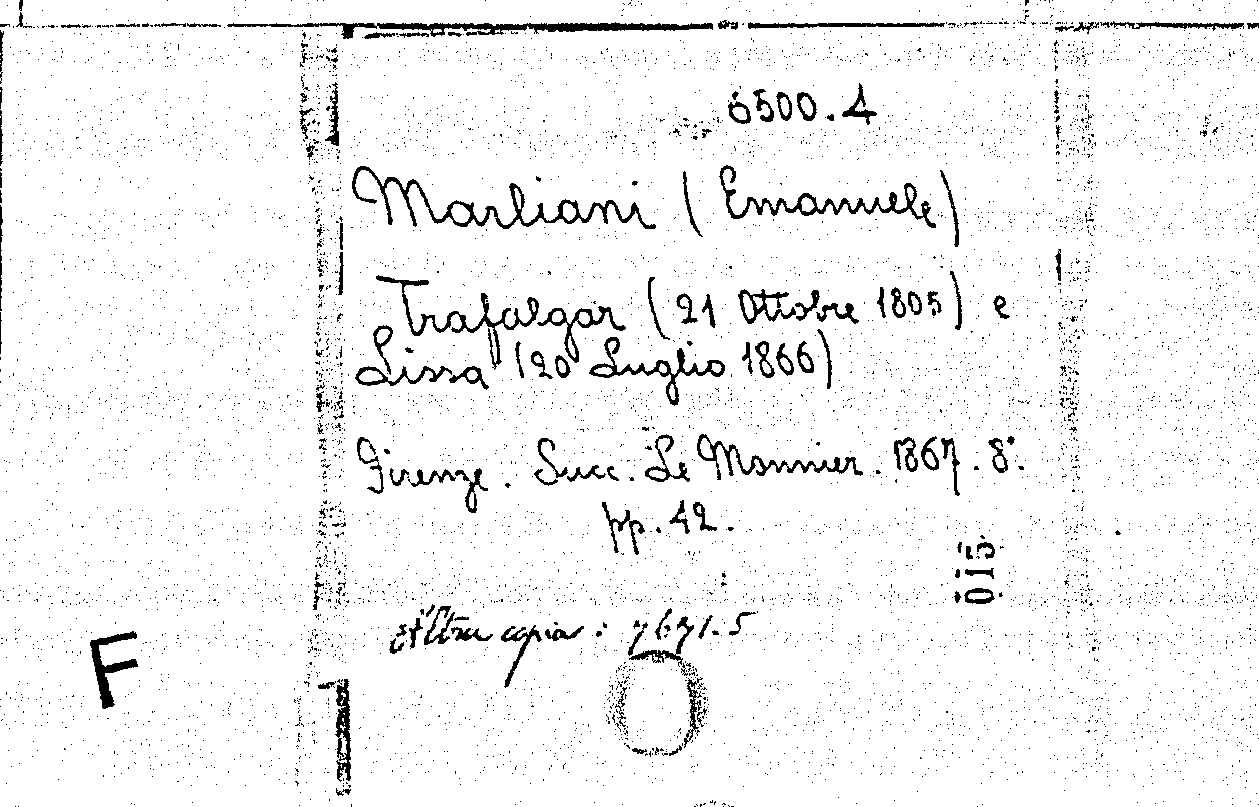 6500.4
Marliani (Emanuele)
Trafalgar (21 Ottobre 1805) e
Lissa (20 Luglio 1866)
Firenze. Succ. Le Monnier. 1867. 8°.
pp. 42.
015
Altra copia: 7671.5
F